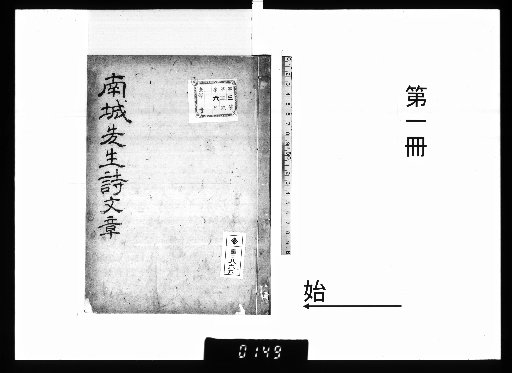 第一冊
始
南城先生詩文章
0149